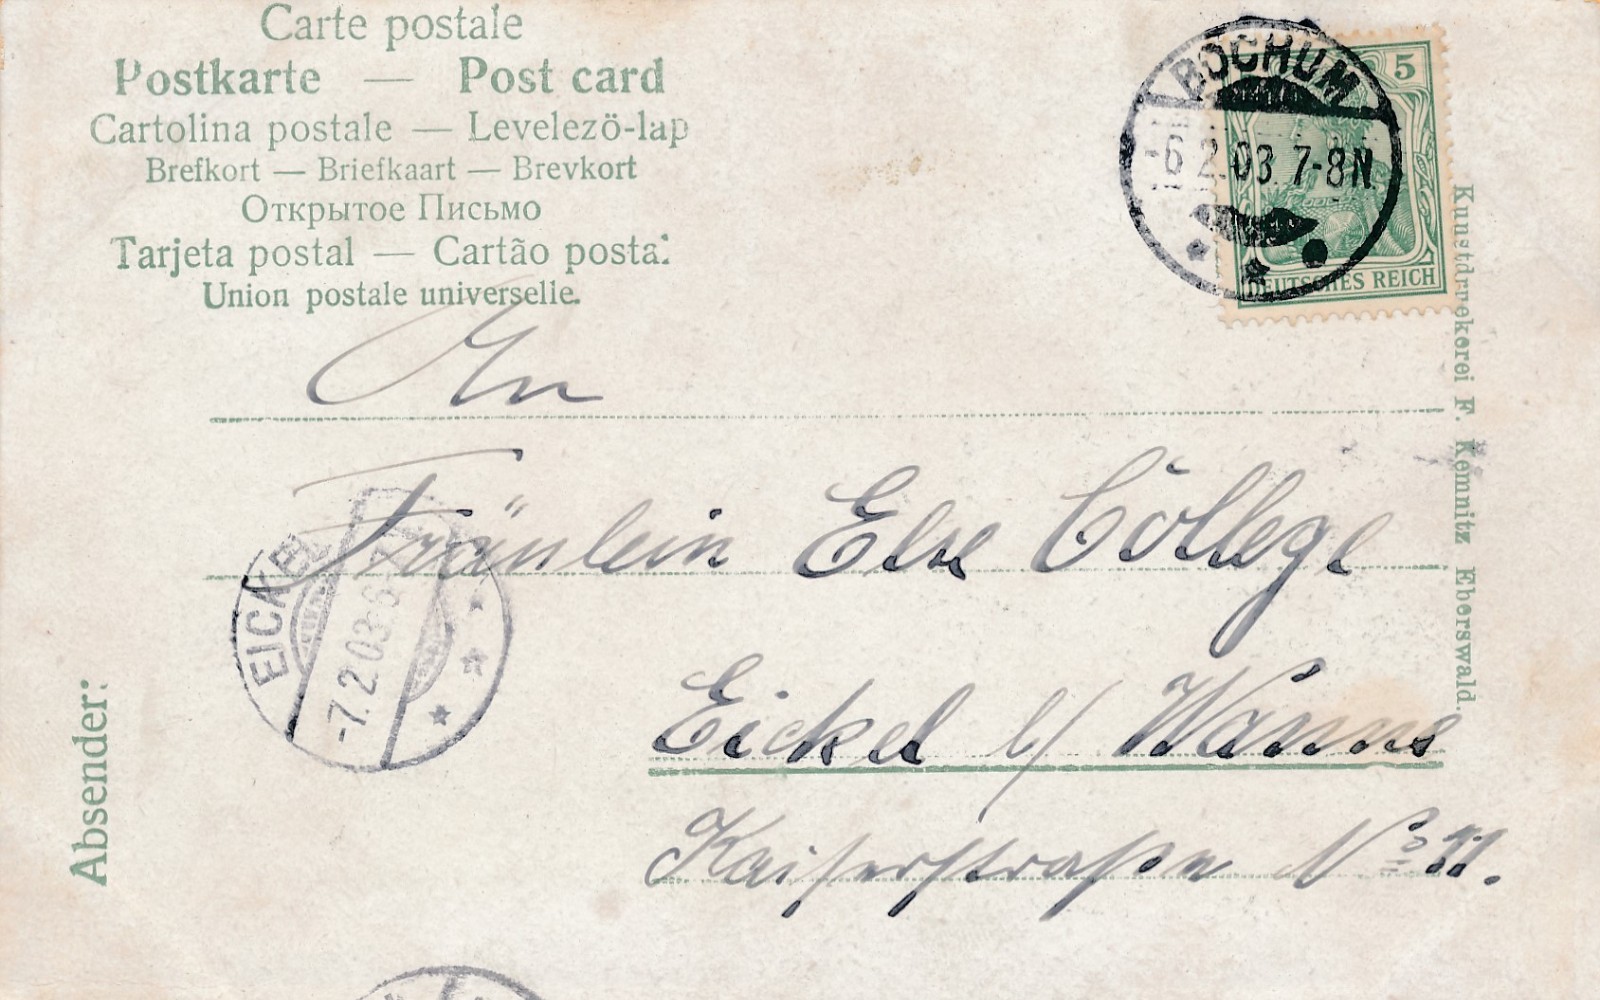 Carte postale
Postkarte — Post card
Cartolina postale — Levelezö-lap
Brefkort — Briefkaart — Brevkort
Открытое Письмо
Tarjeta postal — Cartão postal
Union postale universelle.
BOCHUM
-6.2.03.7-8N.
5
DEUTSCHES REICH
Kunstdruckerei F. Kemnitz Eberswald.
An
Fräulein Else Cöllege
EICKEL
-7.2.03.6-7
Eickel b/ Wanne
Kaiserstraße No
Absender: